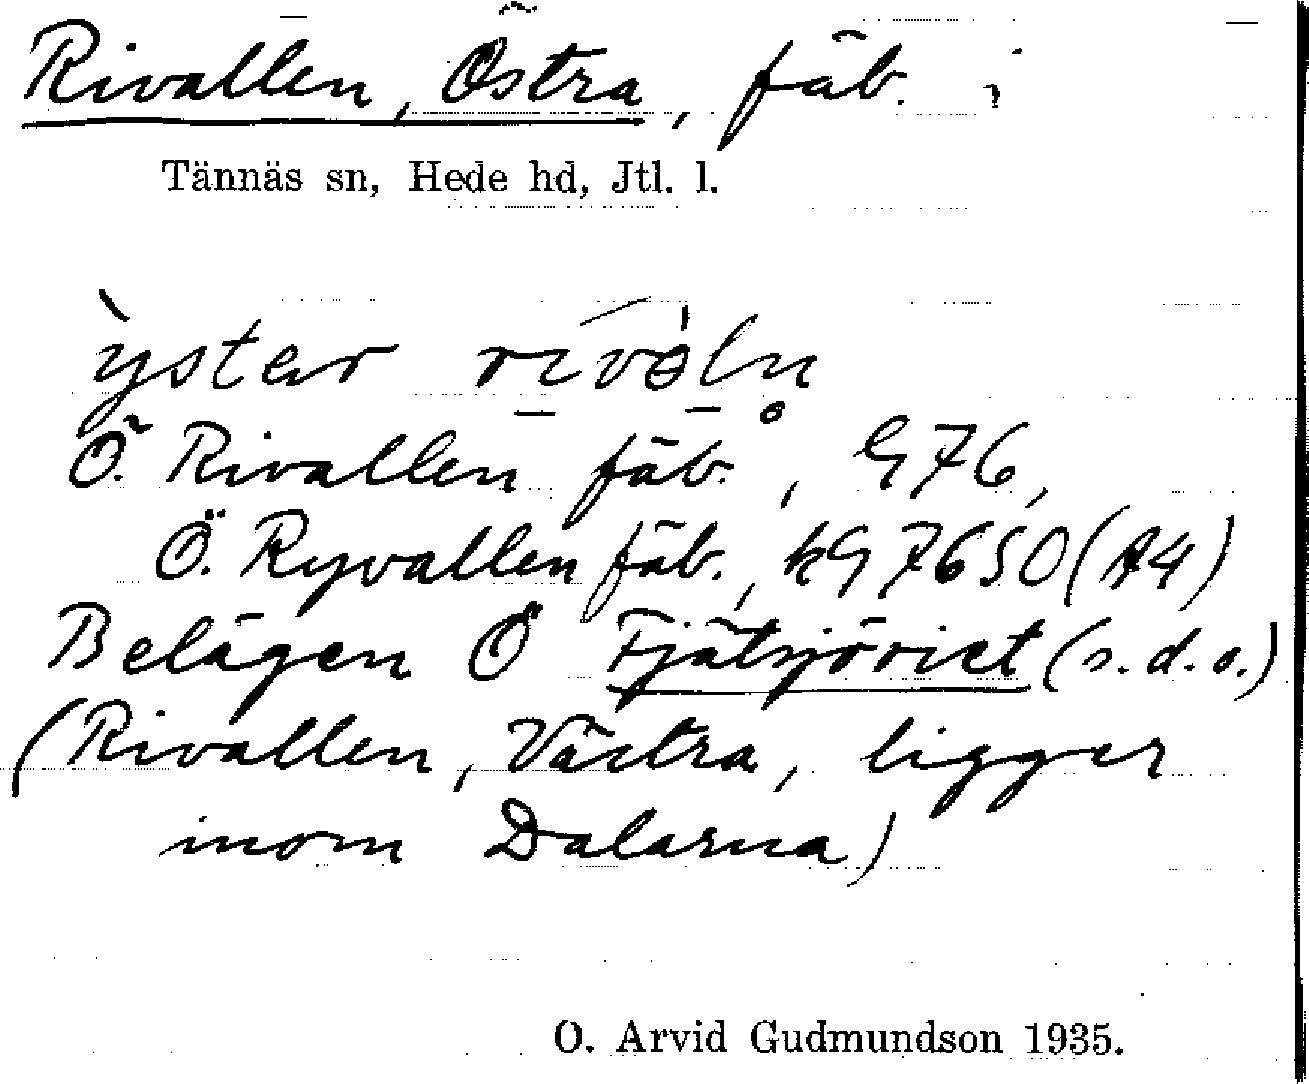 Rivallen, Östra, fäb. i
Tännäs sn, Hede hd, Jtl. l.
Ö. Rivallen fäb., G76,
Ö. Ryvallen fäb., kG7650(A4)
Belägen Ö Fjätsjöriet (s.d.o.)
(Rivallen, Västra, ligger
inom Dalarna)
O. Arvid Gudmundson 1935.